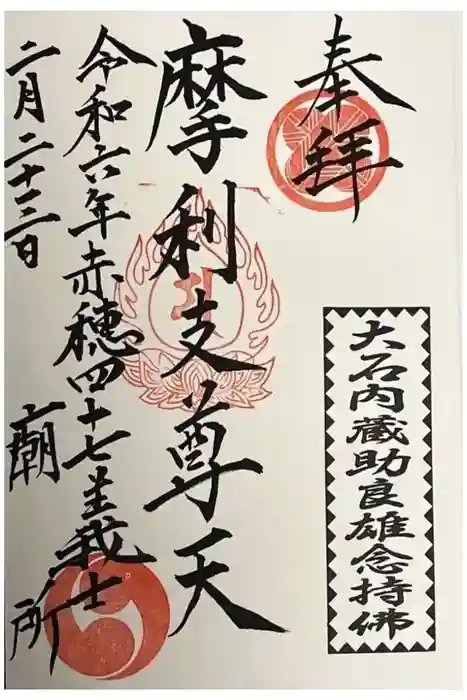 奉拝
大石内蔵助良雄念持佛
摩利支尊天
令和六年赤穂四十七義士
二月二十三日
廟所